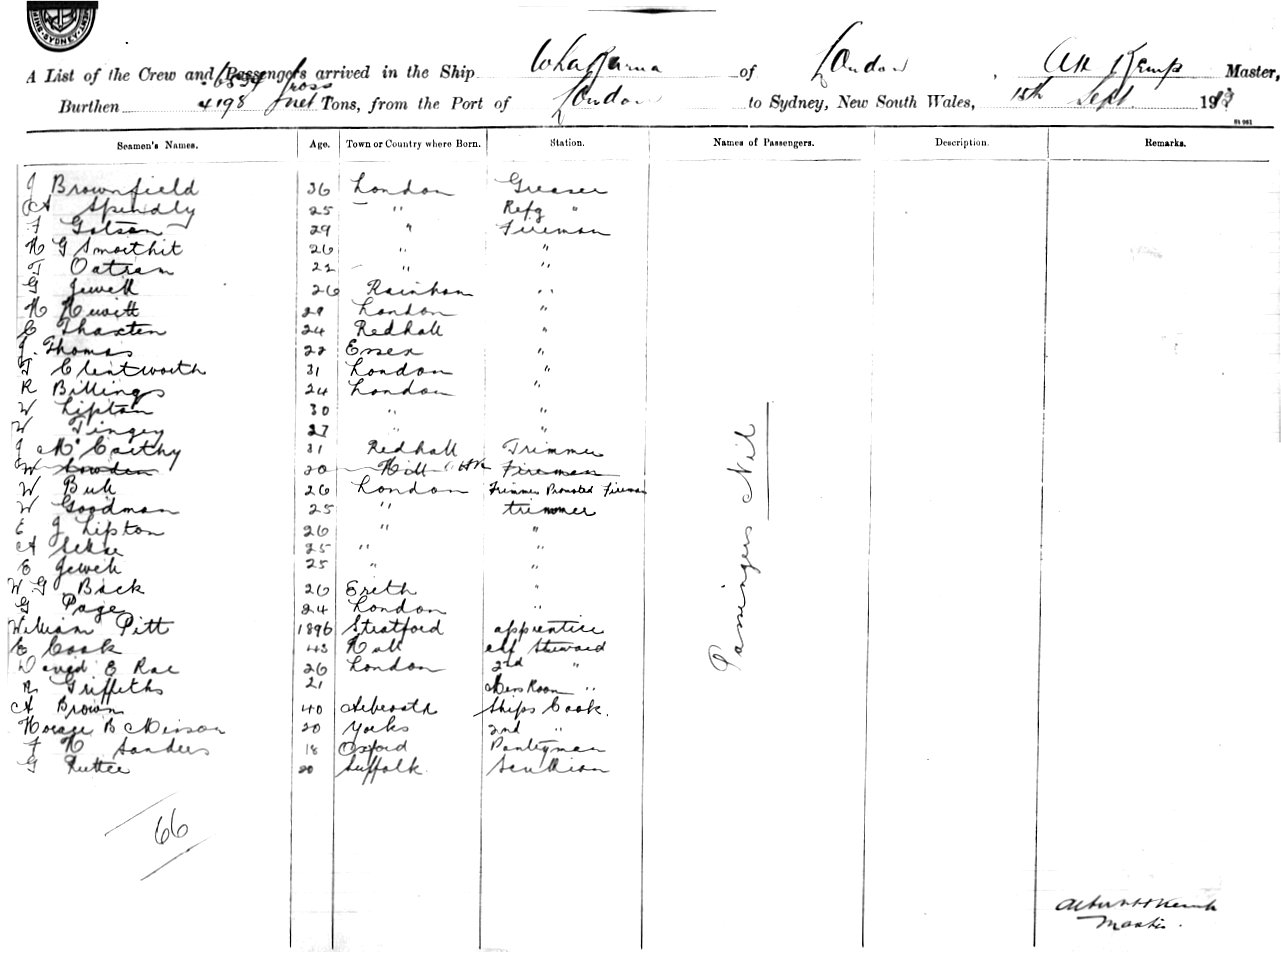 SHIPPING · SYDNEY
A List of the Crew and Passengers arrived in the Ship Wakarima of London, AH Kemp Master,
6534 gross
Burthen 4198 net Tons, from the Port of London to Sydney, New South Wales, 15th Sept 1913
Seamen's Names. Age. Town or Country where Born. Station. Names of Passengers. Description. Remarks.
J Brownfield 36 London Greaser
A Spindly 25 " Refg "
F Golson 29 " Fireman
H G Smoothit 26 " "
T Oatram 22 " "
G Jewell 26 Rainham "
H Hewitt 29 London "
C Thaxten 24 Redhall "
J. Thomas 22 Essex "
T Clentworth 31 London "
R Billings 24 London "
W Lipton 30 " "
W Tingey 27 " "
J McCarthy 31 Redhall Trimmer
W Cowden 20 Hill Fireman
W Bull 26 London Trimmer Promoted Fireman
W Goodman 25 " trimmer
E J Lipton 26 " "
A 25 " "
E Jewell 25 " "
W G Back 26 Erith "
G Page 24 London "
William Pitt 1896 Stratford apprentice
E Cook 43 Hull chf Steward
David E Rae 26 London 2nd "
R Griffeths 21 Mess Room "
A Brown 40 Ships Cook.
Horace B Minson 20 Yorks 2nd "
F H Sanders 18 Oxford Pantryman
G Rutter 20 Suffolk. Scullion
Passengers Nil
66
Albert H Kemp
Master.